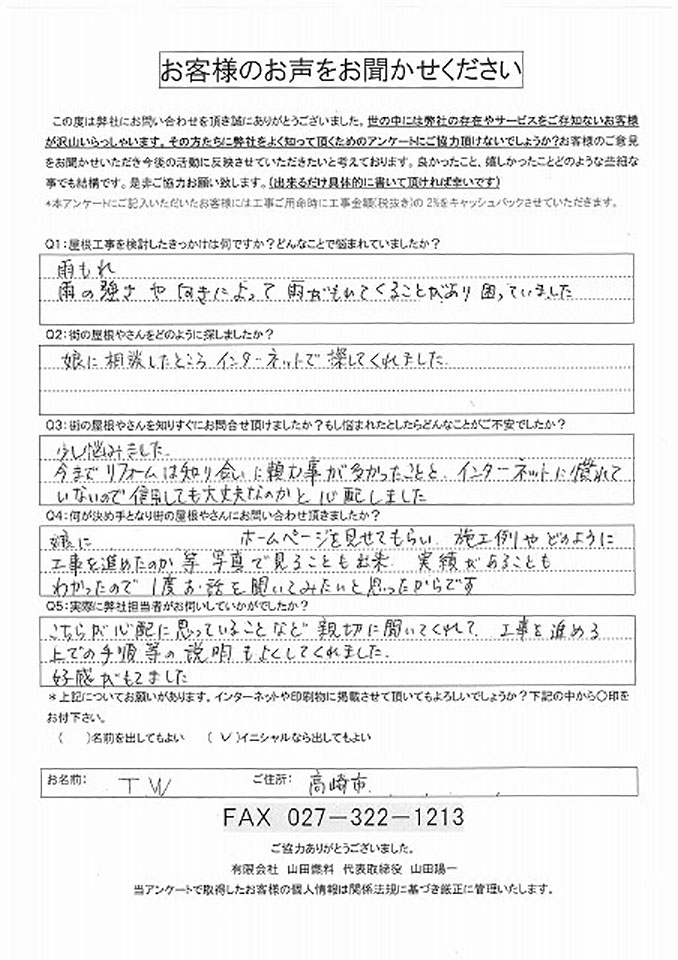 お客様のお声をお聞かせください
この度は弊社にお問い合わせを頂き誠にありがとうございました。世の中には弊社の存在やサービスをご存知ないお客様
が沢山いらっしゃいます。その方たちに弊社をよく知って頂くためのアンケートにご協力頂けないでしょうか?お客様のご意見
をお聞かせいただき今後の活動に反映させていただきたいと考えております。良かったこと、嬉しかったことどのような些細な
事でも結構です。是非ご協力お願い致します。(出来るだけ具体的に書いて頂ければ幸いです)
*本アンケートにご記入いただいたお客様には工事ご用命時に工事金額(税抜き)の2%をキャッシュバックさせていただきます。
Q1:屋根工事を検討したきっかけは何ですか?どんなことで悩まれていましたか?
雨もれ
雨の強さや向きによって雨がもれてくることがあり困っていました
Q2:街の屋根やさんをどのように探しましたか?
娘に相談したところインターネットで探してくれました.
Q3:街の屋根やさんを知りすぐにお問合せ頂けましたか?もし悩まれたとしたらどんなことがご不安でしたか?
少し悩みました.
今までリフォームは知り合いに頼む事が多かったことと、インターネットに慣れて
いないので信用しても大丈夫なのかと心配しました
Q4:何が決め手となり街の屋根やさんにお問い合わせ頂きましたか?
娘に ホームページを見せてもらい、施工例やどのように
工事を進めたのか等写真で見ることも出来、実績があることも
わかったので1度お話を聞いてみたいと思ったからです
Q5:実際に弊社担当者がお伺いしていかがでしたか?
こちらが心配に思っていることなど親切に聞いてくれて、工事を進める
上での手順等の説明もよくしてくれました.
好感がもてました
*上記についてお願いがあります。インターネットや印刷物に掲載させて頂いてもよろしいでしょうか?下記の中から〇印を
お付下さい。
( )名前を出してもよい (✓)イニシャルなら出してもよい
お名前: T W ご住所: 高崎市
FAX 027-322-1213
ご協力ありがとうございました。
有限会社 山田燃料 代表取締役 山田陽一
当アンケートで取得したお客様の個人情報は関係法規に基づき厳正に管理いたします。